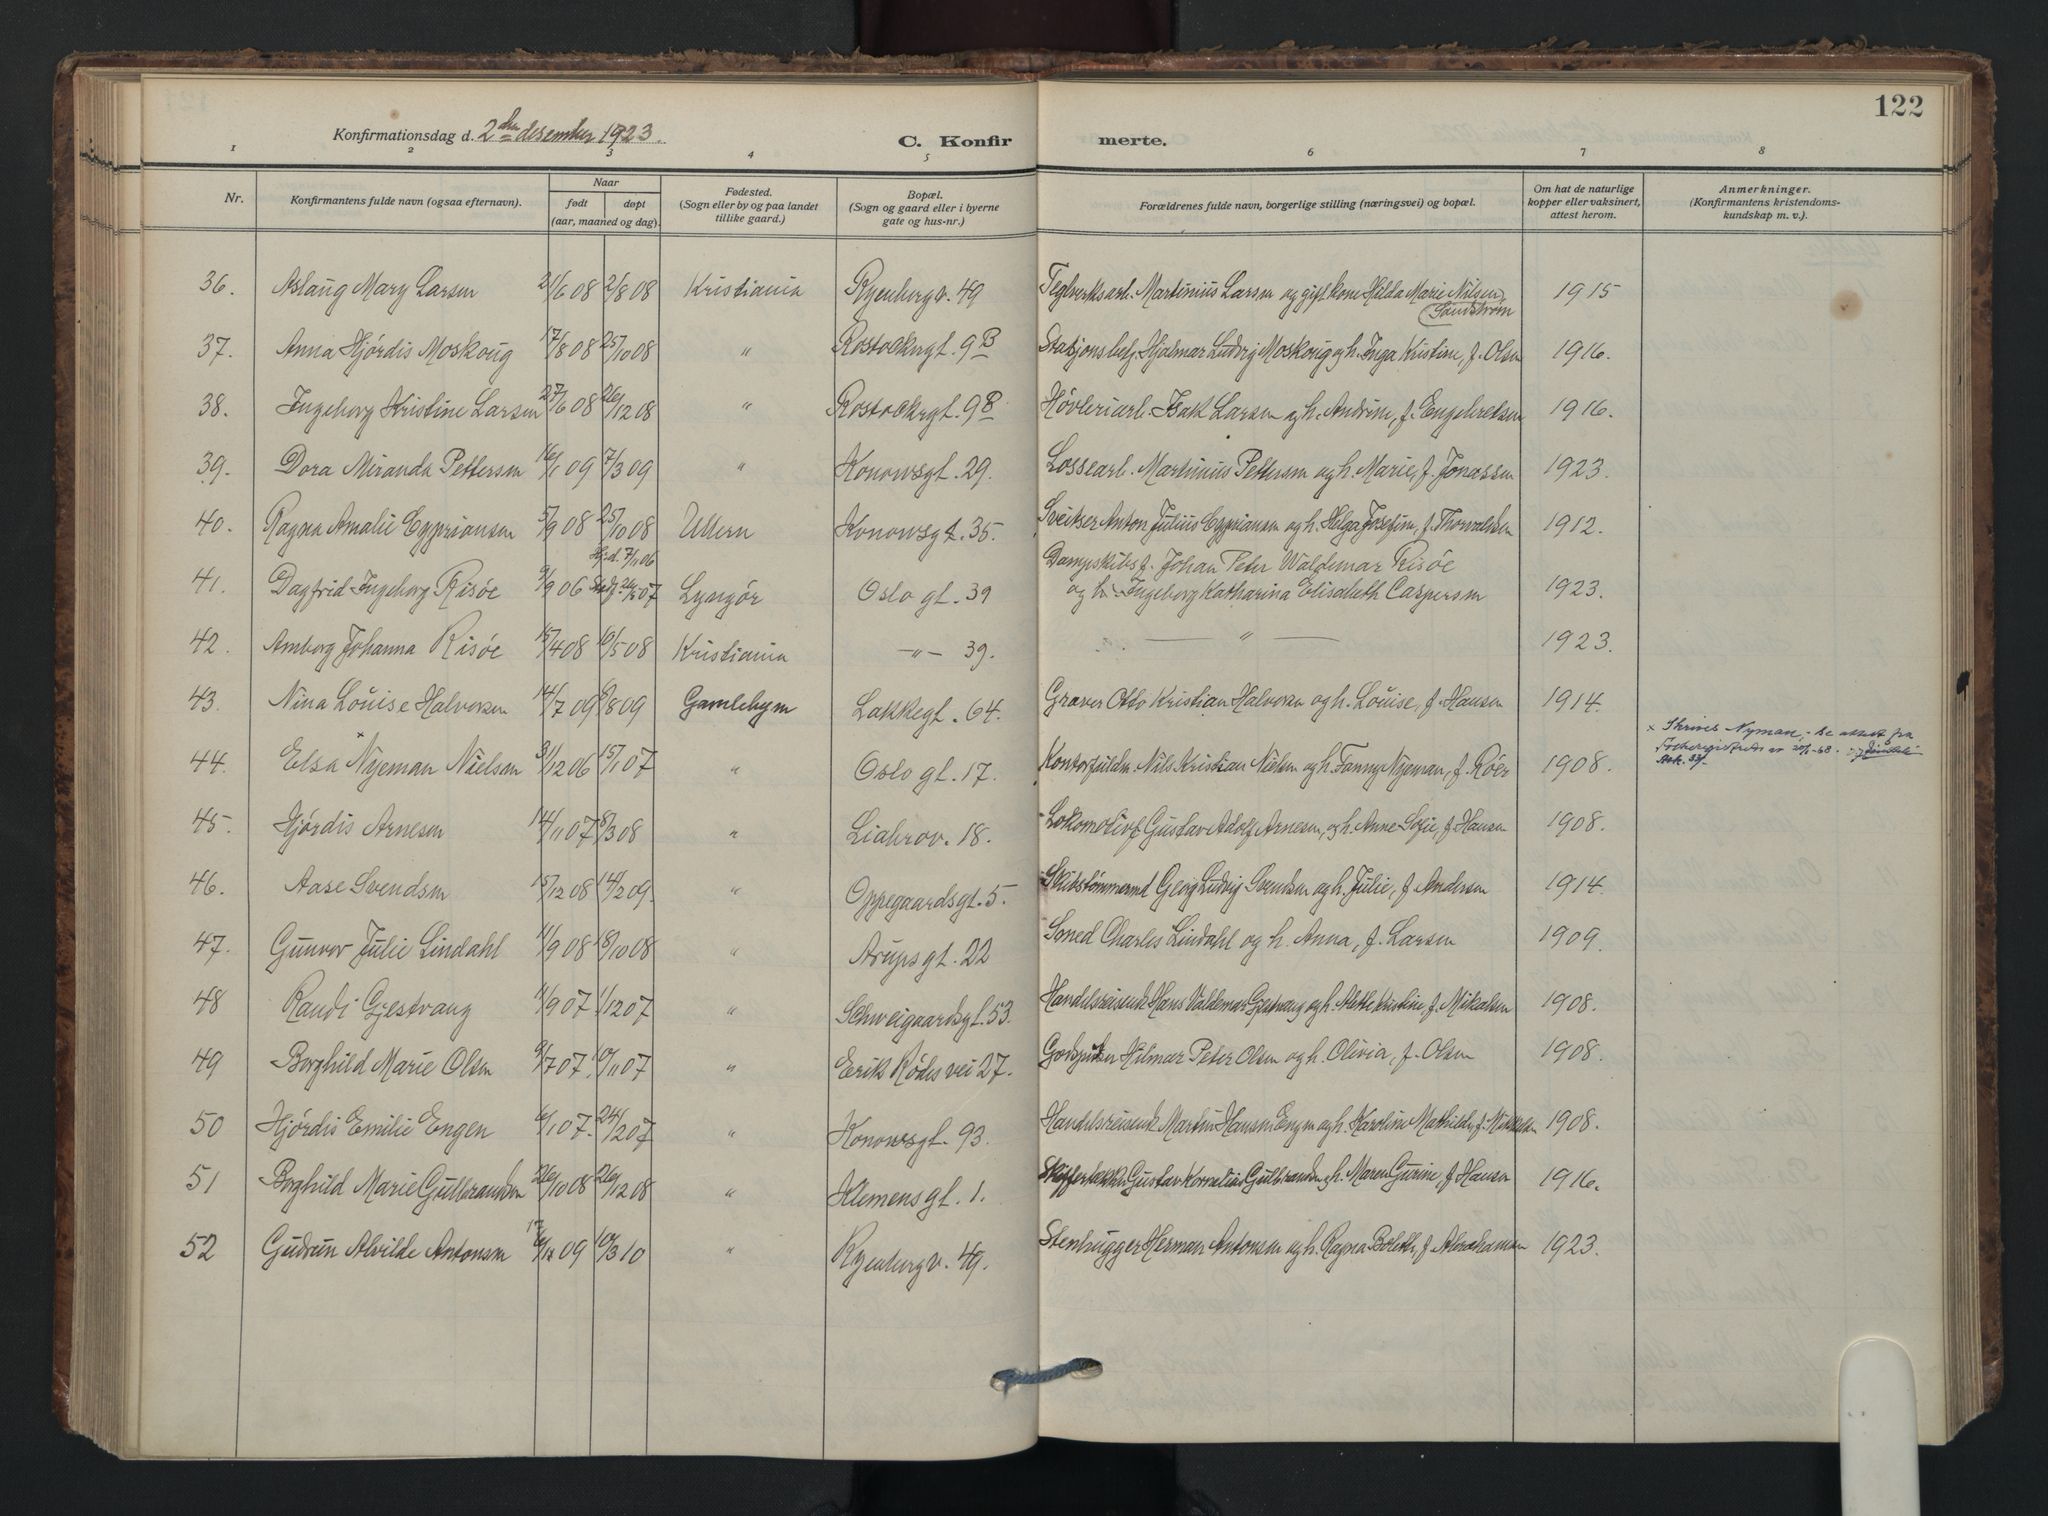 122
Konfirmationsdag d. 2den desember 1923.
C. Konfirmerte.
1 2 3 4 5 6 7 8
Nr. Konfirmantens fulde navn (ogsaa efternavn). Naar født døpt (aar, maaned og dag). Fødested. (Sogn eller by og paa landet tillike gaard.) Bopæl. (Sogn og gaard eller i byerne gate og hus-nr.) Forældrenes fulde navn, borgerlige stilling (næringsvei) og bopæl. Om hat de naturlige kopper eller vaksinert, attest herom. Anmerkninger. (Konfirmantens kristendomskundskap m. v.)
36. Aslaug Mary Larsen 21/6 08 2/8 08 Kristiania Ryenbergv. 49 Teglverksarb. Martinius Larsen og gift kone Hilda Marie Nilsen, 1915
(Sandstrøm
37. Anna Hjördis Moskoug 17/8 08 25/10 08 " Rostockergt. 9B Stasjonsbetj. Hjalmar Ludvig Moskoug og h. Inga Kristine, f. Olsen 1916.
38. Ingeborg Kristine Larsen 27/6 08 26/12 08 " Rostockergt. 9B Høvleriarb. Isak Larsen og h. Andrine, f. Engebretsen 1916.
39. Dora Miranda Pettersen 16/1 09 7/3 09 " Konowsgt. 29. Lossearb. Martinius Pettersen og h. Marie, f. Jonassen 1923.
40. Ragna Amalie Cypriansen 5/9 08 25/10 08 Ullern Konowsgt. 35. Sveitser Anton Julius Cypriansen og h. Helga Josefine, f. Thorvaldsen 1912.
Hjd. 7/11 06 Dampskibsf. Johan Peter Waldemar Risöe
41. Dagfrid Ingeborg Risöe 9/9 06 Stadf. 26/5 07 Lyngör Oslo gt. 39 og h. Ingeborg Katharina Elisabeth Caspersen 1923.
42. Arnborg Johanna Risöe 15/4 08 10/5 08 Kristiania —"— 39. — " — 1923.
43. Nina Louise Halvorsen 14/7 09 8/8 09 Gamlebyen Lakkegt. 64. Graver Otto Kristian Halvorsen og h. Louise, f. Hansen 1914.
x Skrives Nyman, - se attest fra
44. Elsa xNyeman Nielsen 31/12 06 15/1 07 " Oslo gt. 17. Kontorfuldm. Nils Kristian Nielsen og h. Fanny Nyeman, f. Röer 1908.
45. Hjördis Arnesen 14/11 07 8/3 08 " Liabrov. 18. Lokomotivf. Gustav Adolf Arnesen, og h. Anne Sofie, f. Hansen 1908.
46. Aase Svendsen 15/12 08 14/2 09. " Oppegaardsgt. 5. Skibstømmermd Georg Ludvig Svendsen og h. Julie, f. Andersen 1914.
47. Gunvor Julie Lindahl 11/9 08 18/10 08 " Arupsgt. 22 Smed Charles Lindahl og h. Anna, f. Larsen 1909.
48 Randi Gjestvang 11/9 07 1/12 07 " Schweigaardsgt. 53. Handelsreisende Hans Valdemar Gjestvang og h. Alette Kristine, f. Mikalsen 1908.
49 Borghild Marie Olsen 9/7 07. 10/11 07 " Erik Rødes vei 27. Hilmar Peter Olsen og h. Olivia, f. Olsen 1908.
50 Hjördis Emilie Engen 6/1 07. 24/2 07 " Konowsgt. 93. Handelsreisende Martin Hansen Engen og h. Karoline Mathilde, f. Mikkelsen 1908.
51 Borghild Marie Gulbrandsen 26/10 08 26/12 08 " Klemensgt. 1. Skiffertekker Gustav Kornelius Gulbrandsen og h. Maren Gurine, f. Hansen 1916.
52 Gudrun Alvilde Antonsen 09 10/3 10 " Ryenbergv. 49. Stenhugger Herman Antonsen og h. Ragna Bolette, f. Abrahamsen 1923.